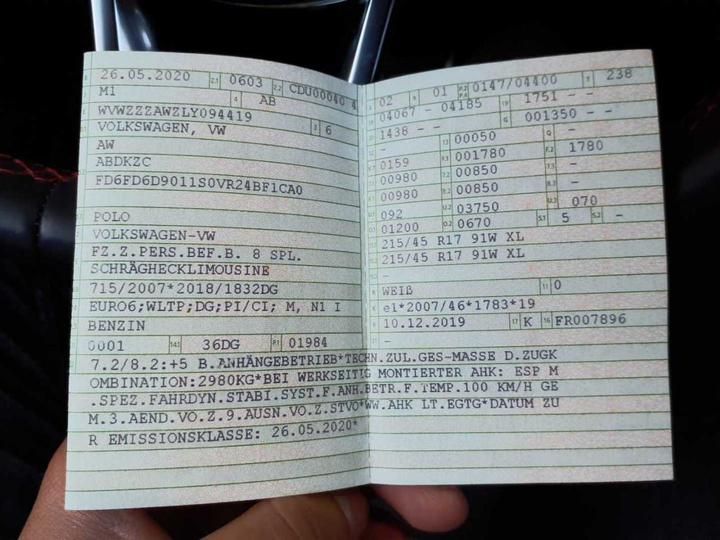 26.05.2020 2.1 0603 2.2 CDU00040 4
M1 4 AB
WVWZZZAWZLY094419
VOLKSWAGEN, VW 3 6
AW
ABDKZC
FD6FD6D9011S0VR24BF1CA0
POLO
VOLKSWAGEN-VW
FZ.Z.PERS.BEF.B. 8 SPL.
SCHRÄGHECKLIMOUSINE
715/2007*2018/1832DG
EURO6;WLTP;DG;PI/CI; M, N1 I
BENZIN
0001 14.1 36DG P.1 01984
02 9 01 P.2 P.4 0147/04400 T 238
04067 - 04185 19 1751 - -
1438 - - G 001350 - -
- 13 00050 Q -
0159 F.1 001780 F.2 1780
00980 7.2 00850 -
00980 8.2 00850 -
092 U.2 03750 U.3 070
01200 O.2 0670 S.1 5 S.2 -
215/45 R17 91W XL
215/45 R17 91W XL
-
WEIß 11 0
e1*2007/46*1783*19
10.12.2019 17 K 16 FR007896
-
7.2/8.2:+5 B.ANHÄNGEBETRIEB*TECHN.ZUL.GES-MASSE D.ZUGK
OMBINATION:2980KG*BEI WERKSEITIG MONTIERTER AHK: ESP M
.SPEZ.FAHRDYN.STABI.SYST.F.ANH.BETR.F.TEMP.100 KM/H GE
M.3.AEND.VO.Z.9.AUSN.VO.Z.STVO*WW.AHK LT.EGTG*DATUM ZU
R EMISSIONSKLASSE: 26.05.2020*